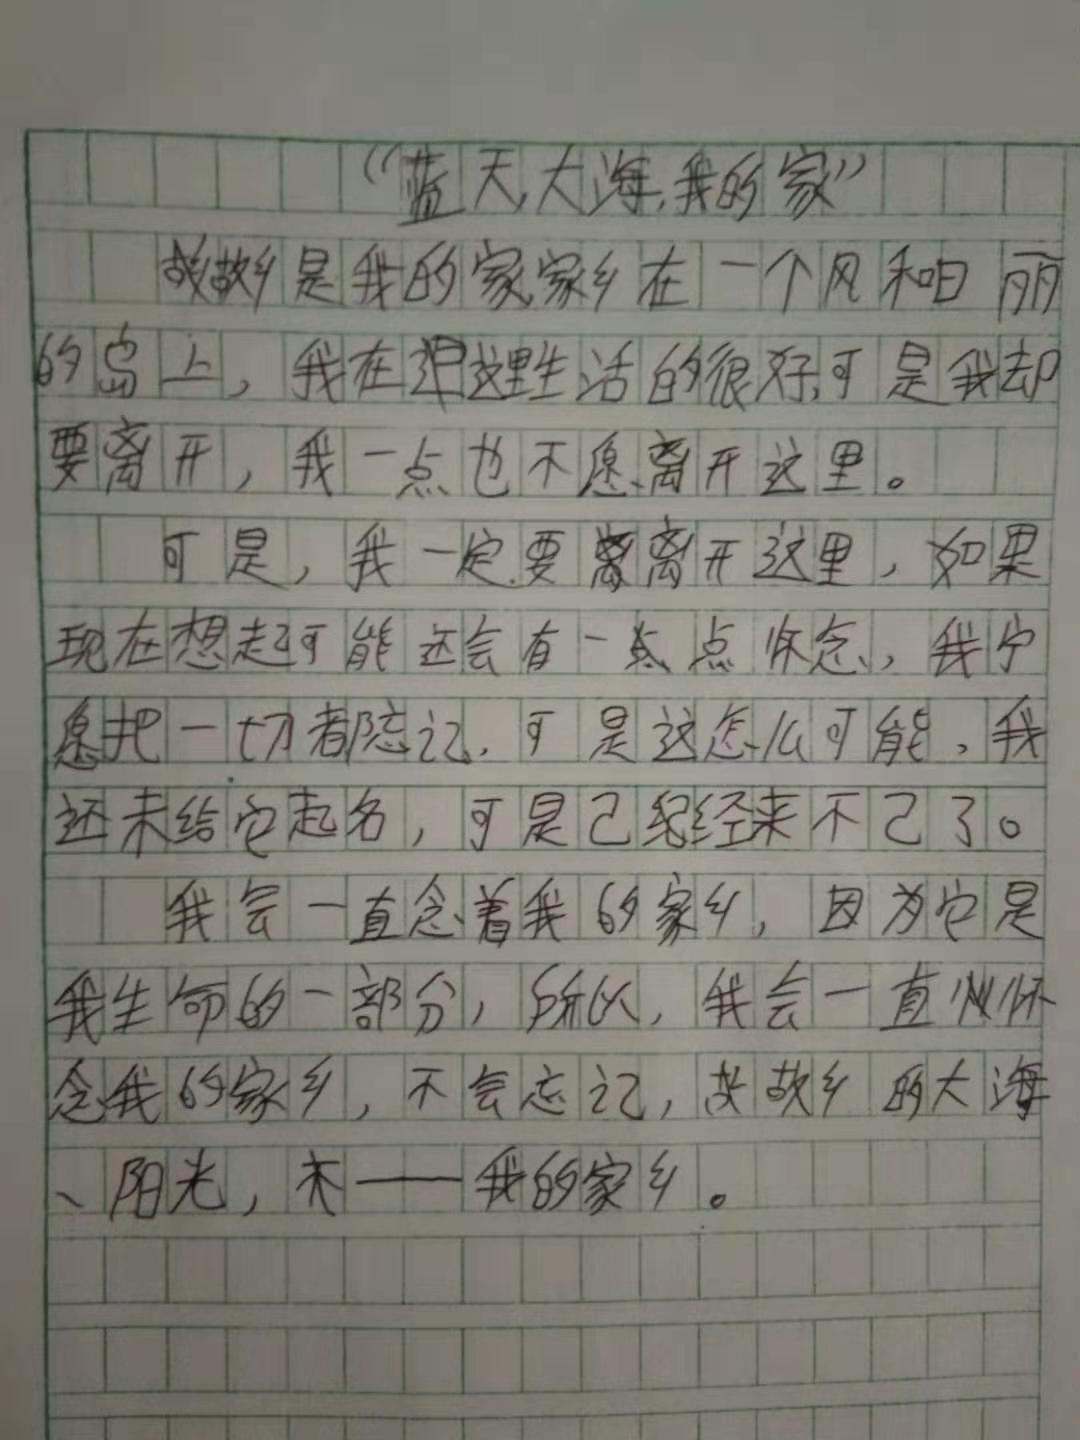 “蓝天,大海,我的家”
故故乡是我的家,家乡在一个风和日丽
的岛上，我在这里生活的很好,可是我却
要离开，我一点也不愿离开这里。
可是，我一定要离开这里，如果
现在想起可能还会有一点点怀念，我宁
愿把一切都忘记,可是这怎么可能，我
还未给它起名，可是已经来不己了。
我会一直念着我的家乡，因为它是
我生命的一部分，所以，我会一直怀
念我的家乡，不会忘记，故乡的大海
、阳光，木——我的家乡。